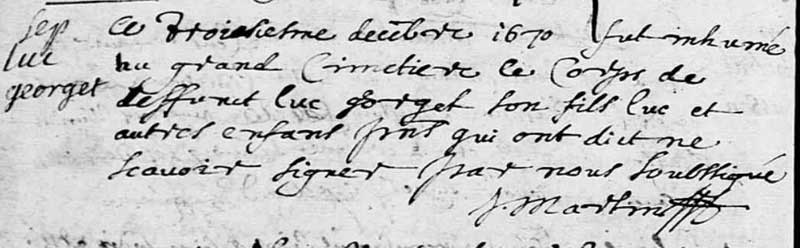 sep
luc
georget
Le Troisiesme decembre 1670 fut inhumé
au grand Cimetiere le Corps de
deffunct luc georget son fils luc et
autres enfans pnts qui ont dict ne
scavoir signer par nous soubssigné
J Martin